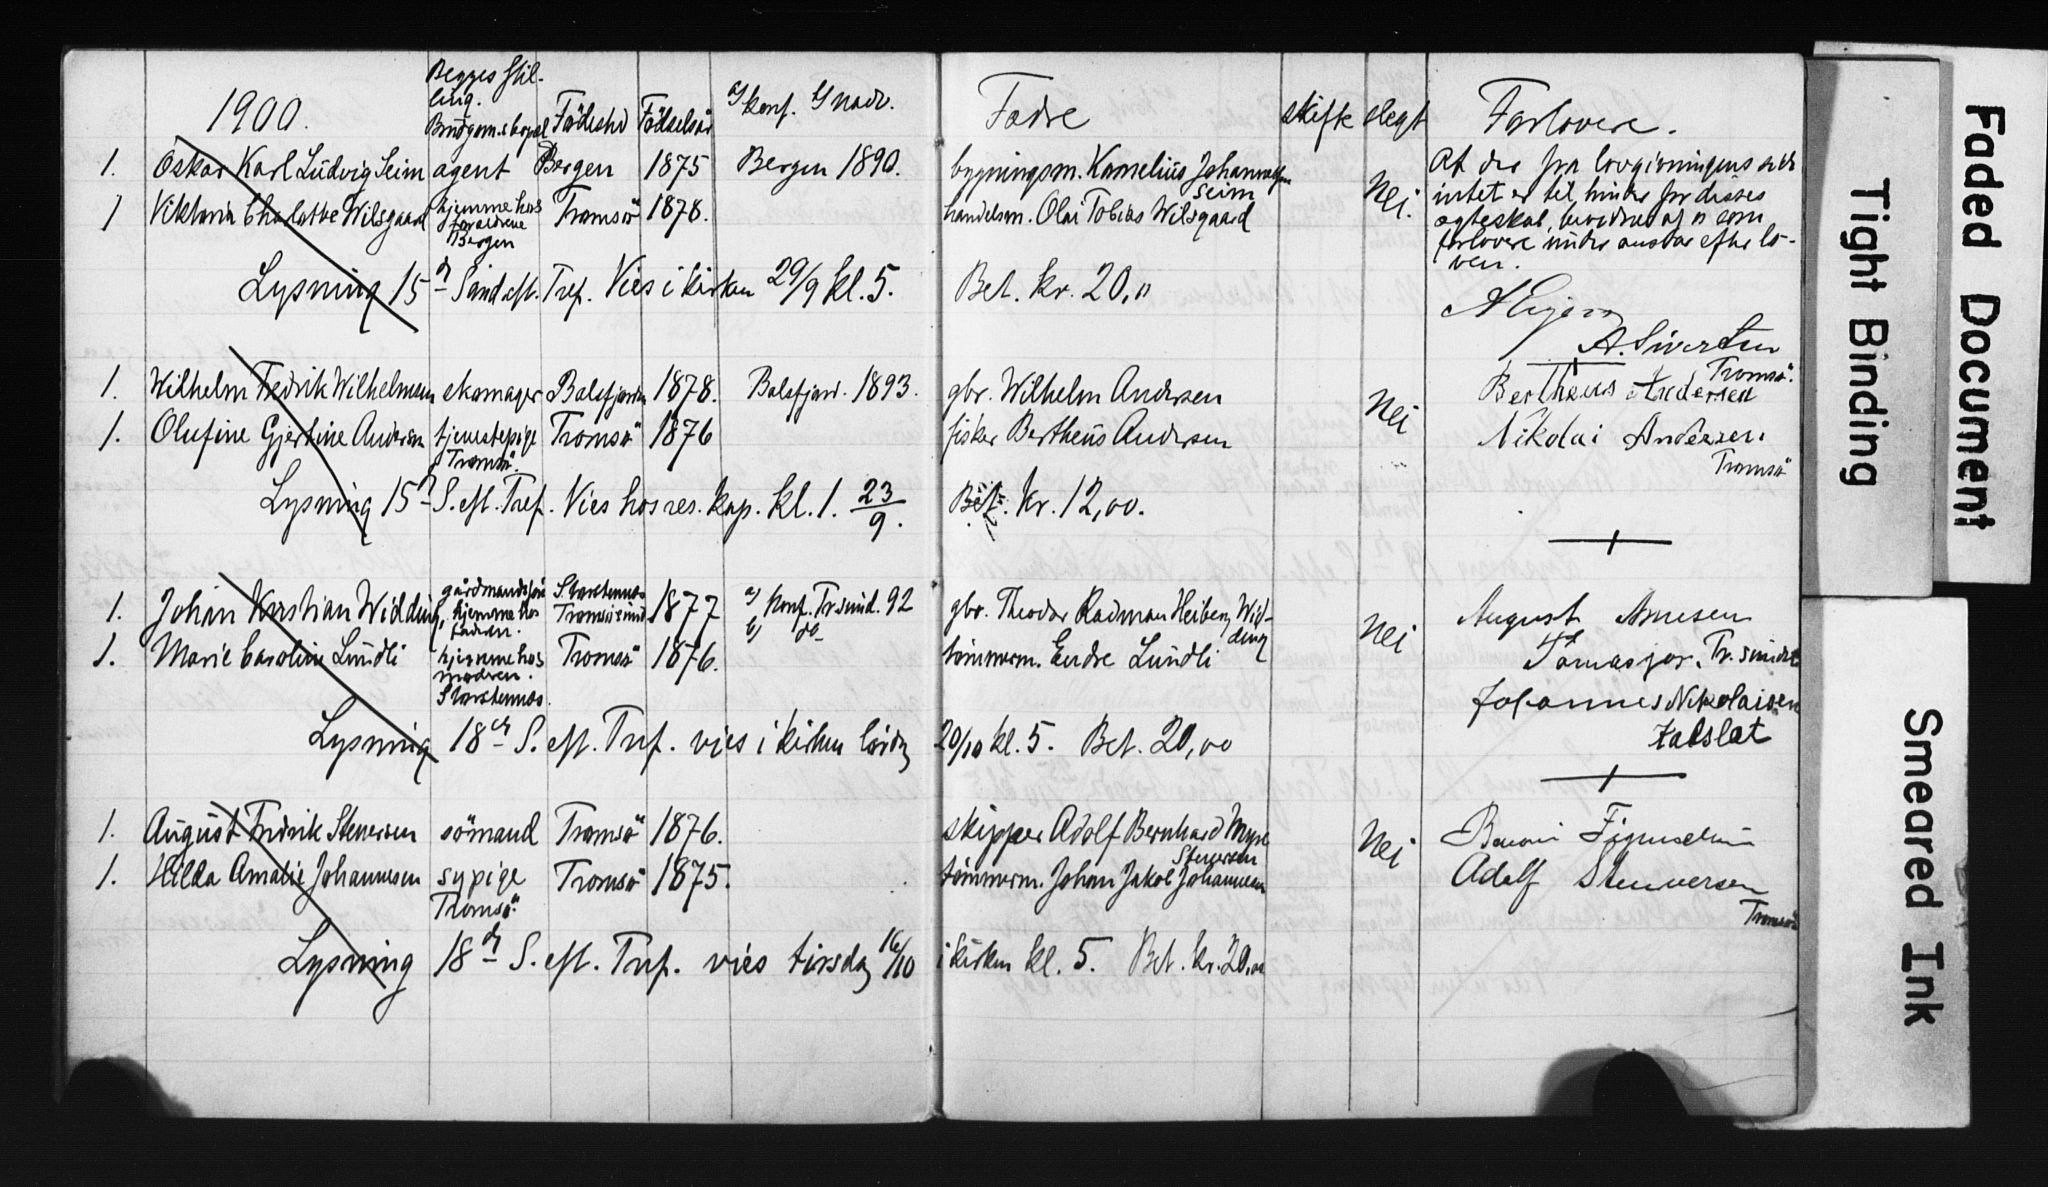 1900.
Begges Stil-
ling.
Brudgom.s bopæl
Födested
Födselsår
a) konf. b) nadv.
Fædre
skifte
slegt
Forlovere.
1. Oskar Karl Ludvig Seim agent Bergen 1875 Bergen 1890. bygningsm. Kornelius Johannessen Seim
1 Viktoria Charlotte Wilsgaard hjemme hos forældrene Tromsö 1878. handelsm. Olai Tobias Wilsgaard Nei.
Bergen
At der fra lovgivningens side
intet er til hinder for disses
egteskab, bevidnes af os som
forlovere under ansvar efter lo-
ven.
Lysning 15 d S. eft. Tref. Vies i kirken 29/9 kl. 5. Bet. kr. 20,"
A. Sivertsen
Tromsö.
1. Wilhelm Fedrik Wilhelmsen skomager Balsfjorden 1878. Balsfjord. 1893. gbr. Wilhelm Andersen Bertheus Andersen
1. Olufine Gjertine Andersen tjenestepige Tromsö 1876 fisker Bertheus Andersen Nei Nikolai Andersen
Tromsö. Tromsö
Lysning 15 d S. eft. Tref. Vies hos res. kap. kl. 1. 23/9. Bet. kr. 12,00.
1. Johan Kristian Widding, gårdmandssön hjemme hos faderen. Storstennes Tromsösund 1877 a) Konf. Tr.sund. 92 gbr. Theodor Radman Heiberg Wid-
ding
b) do
August Arnesen
1. Marie Caroline Lundli hjemme hos moderen. Tromsö 1876. tömmerm. Endre Lundli Nei Tomasjor. Tr. sundet
Storstennes.
Johannes Nikolaisen
Kalslet
Lysning 18 de S. eft. Tref. vies i kirken lördag 20/10 kl. 5. Bet. 20,00
1. August Fredrik Stenersen sömand Tromsö 1876. skipper Adolf Bernhard Myre
Stenersen
1. Hilda Amalie Johannesen sypige Tromsö 1875. tömmerm. Johan Jakob Johannesen Nei Adolf Stenersen
Tromsö. Tromsö
Lysning 18 de S. eft. Tref. vies tirsdag 16/10 i kirken kl. 5. Bet. kr. 20,00
Faded Document
Tight Binding
Smeared Ink